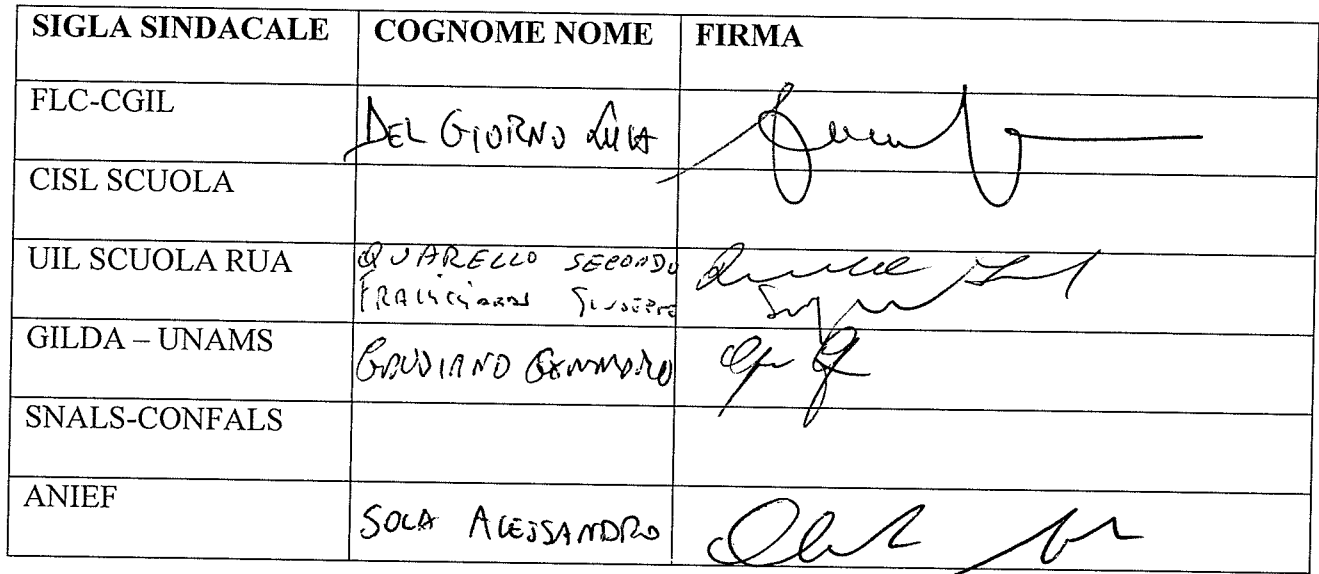 SIGLA SINDACALE COGNOME NOME FIRMA
FLC-CGIL DEL GIORNO LUCA
CISL SCUOLA
UIL SCUOLA RUA QUARELLO SECONDO
GIUSEPPE
GILDA – UNAMS GAUDIANO GENNARO
SNALS-CONFALS
ANIEF SOLA ALESSANDRO